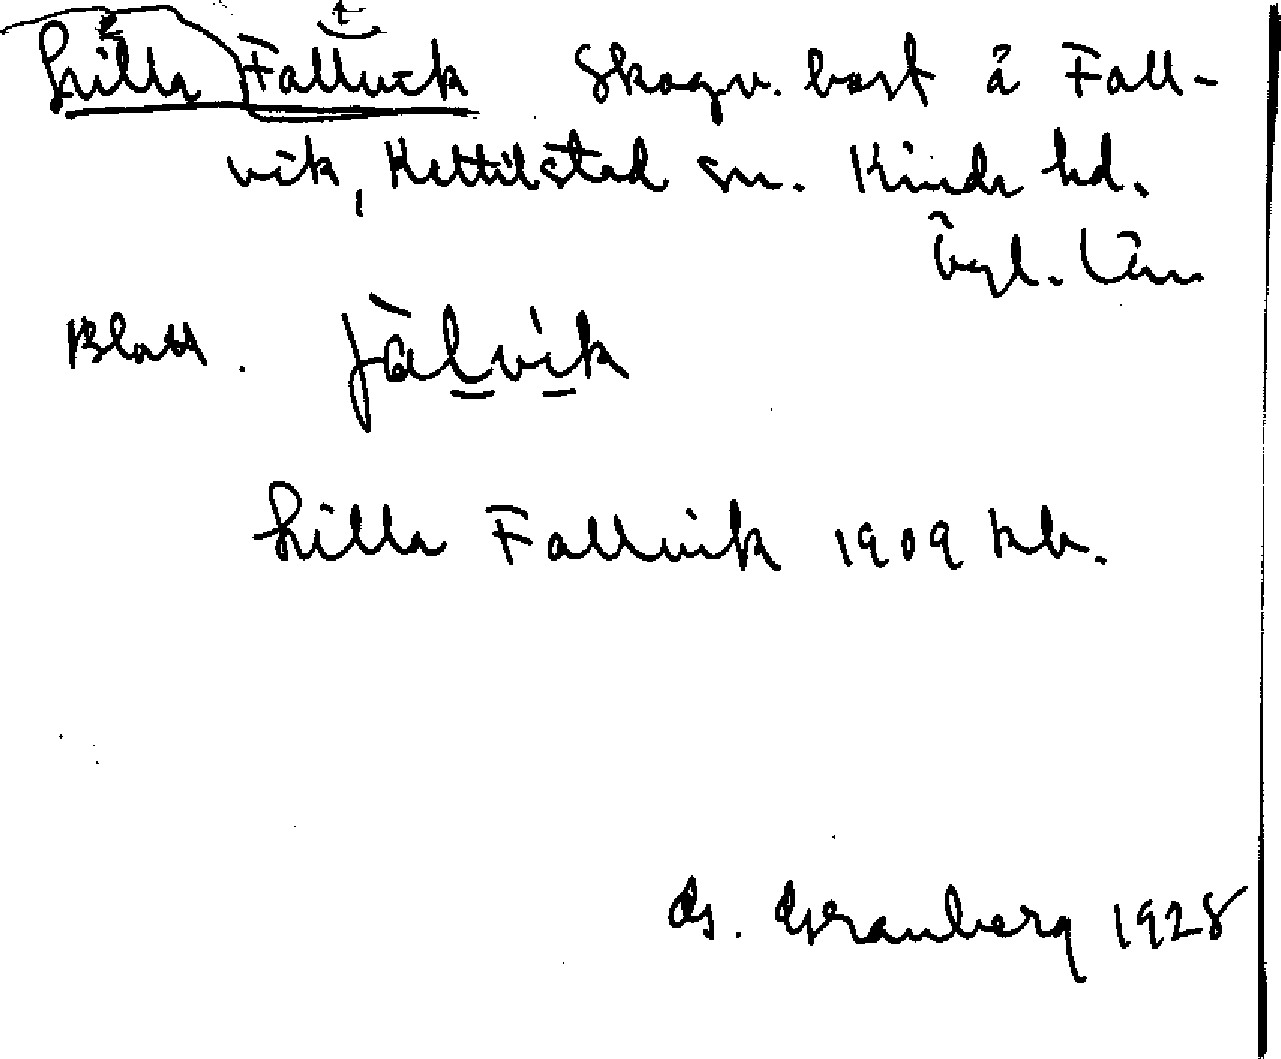 Lilla Fallvik Skogv. bost å Fall-
vik, Kettilstad sn. Kinds hd.
Ögl. Län
fàlvik
Lilla Fallvik 1909 kb.
G. Granberg 1928